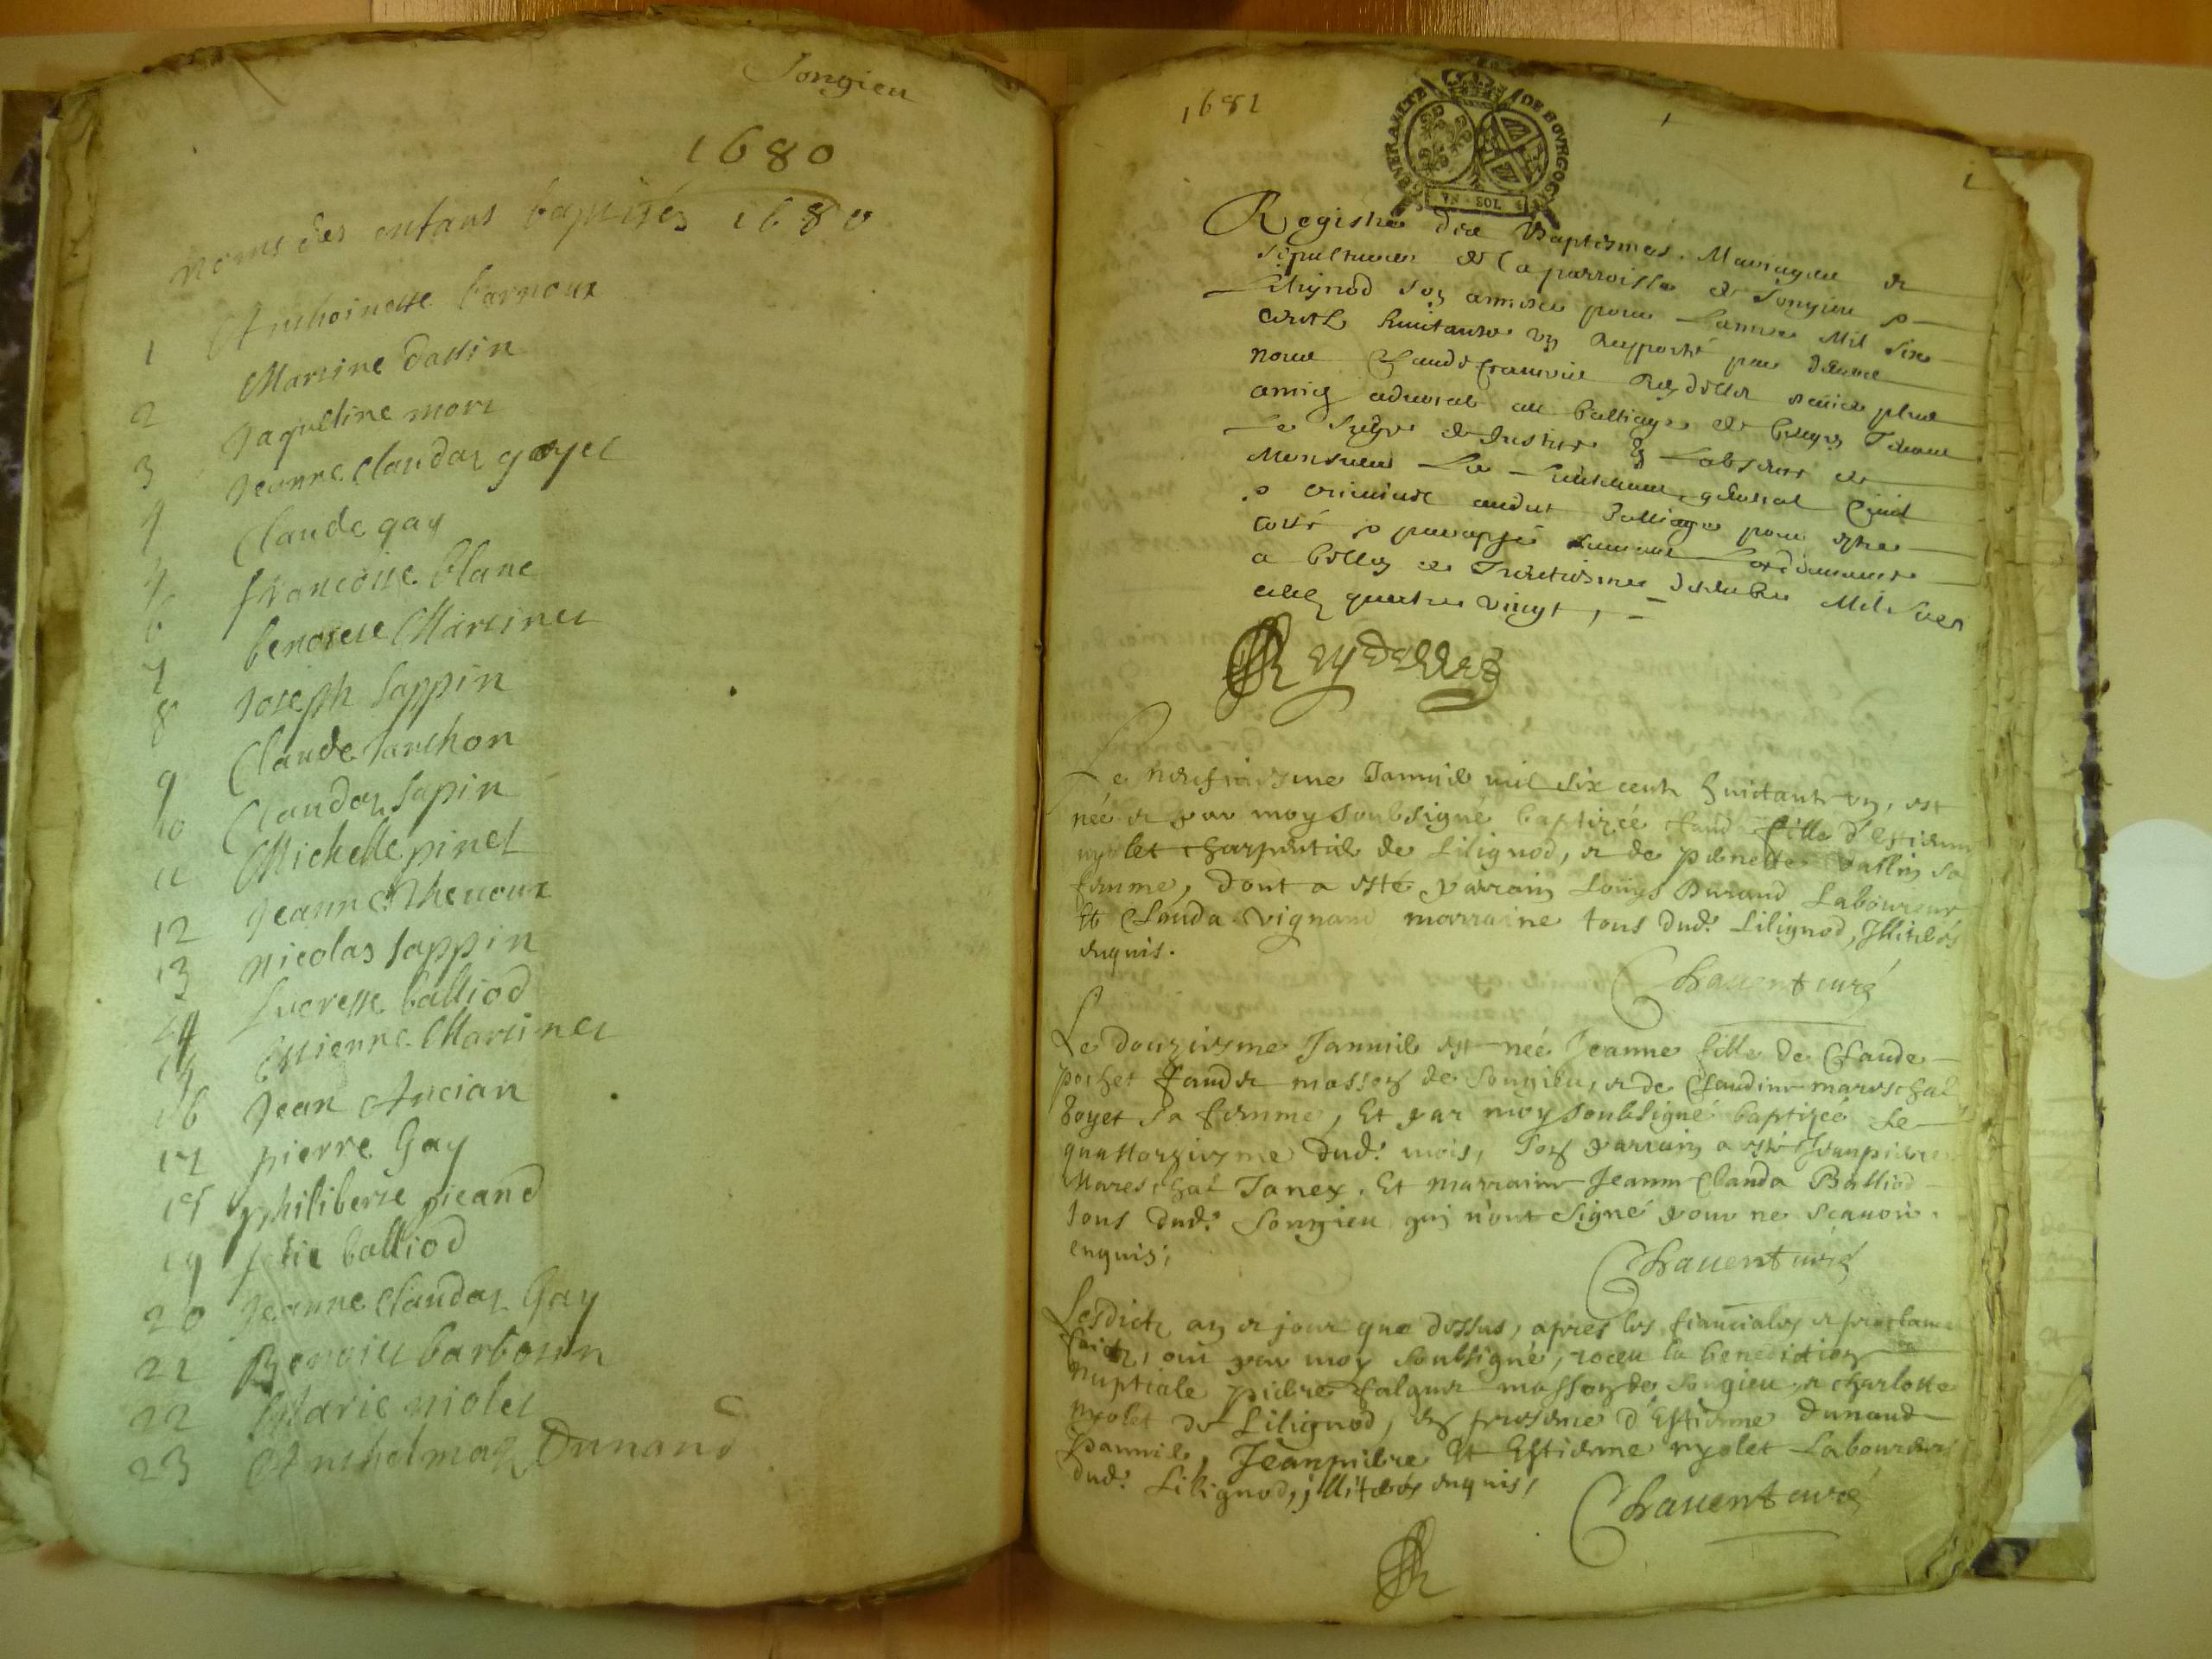 Songieu
1680
noms des enfans baptisés 1680
1 Anthoinette barnoux
2 Martine dassin
3 Jaqueline mori
4 Jeanne Claudaz goyet
5 Claude gay
6 francoise blanc
7 benoiste Martinet
8 Joseph sappin
9 Claude
10 Claudaz sapin
11 Michelle pinet
12 Jeanne Thenoux
13 nicolas sappin
14 Lucresse balliod
15 Estienne Martinet
16 Jean Ancian
17 pierre Gay
18 philiberte picand
19 balliod
20 Jeanne Claudaz Gay
21 Benoist barbosin
22 Marie miolet
23 Anthelmaz Dunand
1681
GENERALITE DE BOVRGOGNE
VN SOL
Registre des Baptesmes, Mariages et
sepultures de la parroisse de Songieu &
Lilignod son annexe pour l'annee Mil six
cents huictante un par devant
nous Claude francois Reydellet plus
antien advocat au balliage de beugey Tenant
le siege de Justice En L'absence de
Monsieur Le Lieutenant general Civil
& criminel audict balliage pour estre
cotté & parapphé suivant L'ordonnance
a belley ce Trentiesme decembre Mil six
cent quatre vingt,
Reydellet
Le neufviesme Janvier mil six cents huictante un, est
née et par moy soubsigné baptizée fille d'Estienne
myolet charpentier de Lilignod, et de pernette vallin sa
femme, dont a esté parrain Louys Durand Laboureur
Et Clauda vignand marraine tous dud.t Lilignod, Illiterés
enquis.
Chavent curé
Le douziesme Janvier est née Jeanne fille de Claude
pochet masson de Songieu, et de Claudine mareschal
boyet sa femme, Et par moy soubsigné baptizée Le
quattorziesme dud.t mois, Son parrain a esté Jeanpierre
Mareschal Janex, Et marraine Jeanne Clauda Balliod
tous dud.t Songieu qui n'ont signé pour ne scavoir.
enquis;
Chavent curé
Lesdicts an et jour que dessus, apres les fiancialles et
faictes, ont par moy soubsigné, receu la benediction
nuptiale pierre masson de Songieu, et Charlotte
myolet de Lilignod, en presence d'Estienne dunand
Jannier, Jeanpierre Et Estienne myolet Laboureurs
dud.t Lilignod, jlliterés enquis,
Chavent curé